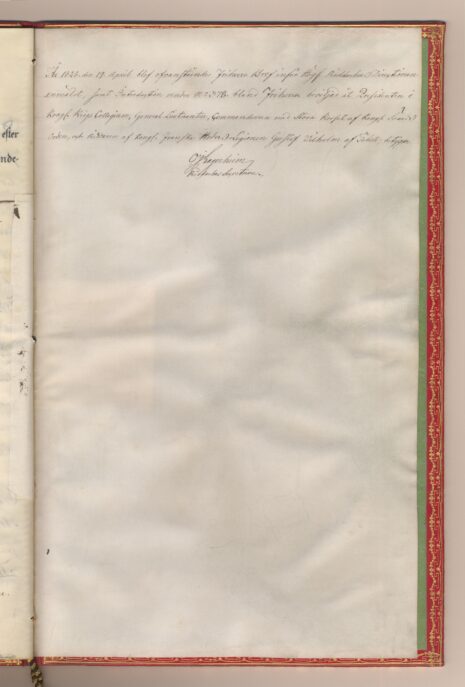 efter
nde-
År 1825 den 19 April blef ofvanstående Friherre Bref inför Kgl. Riddarhus Directionen
anmäldt, samt Introduction under N:o 378 bland Friherrar beviljad åt Presidenten i
Kongl. Krigs Collegium, General Lieutenanten, Commendeuren med Stora Korset af Kongl. Svärds
Orden, och Riddaren af Kongl. Franska Heders Legionen Gustaf
Riddarhus Secreterare.